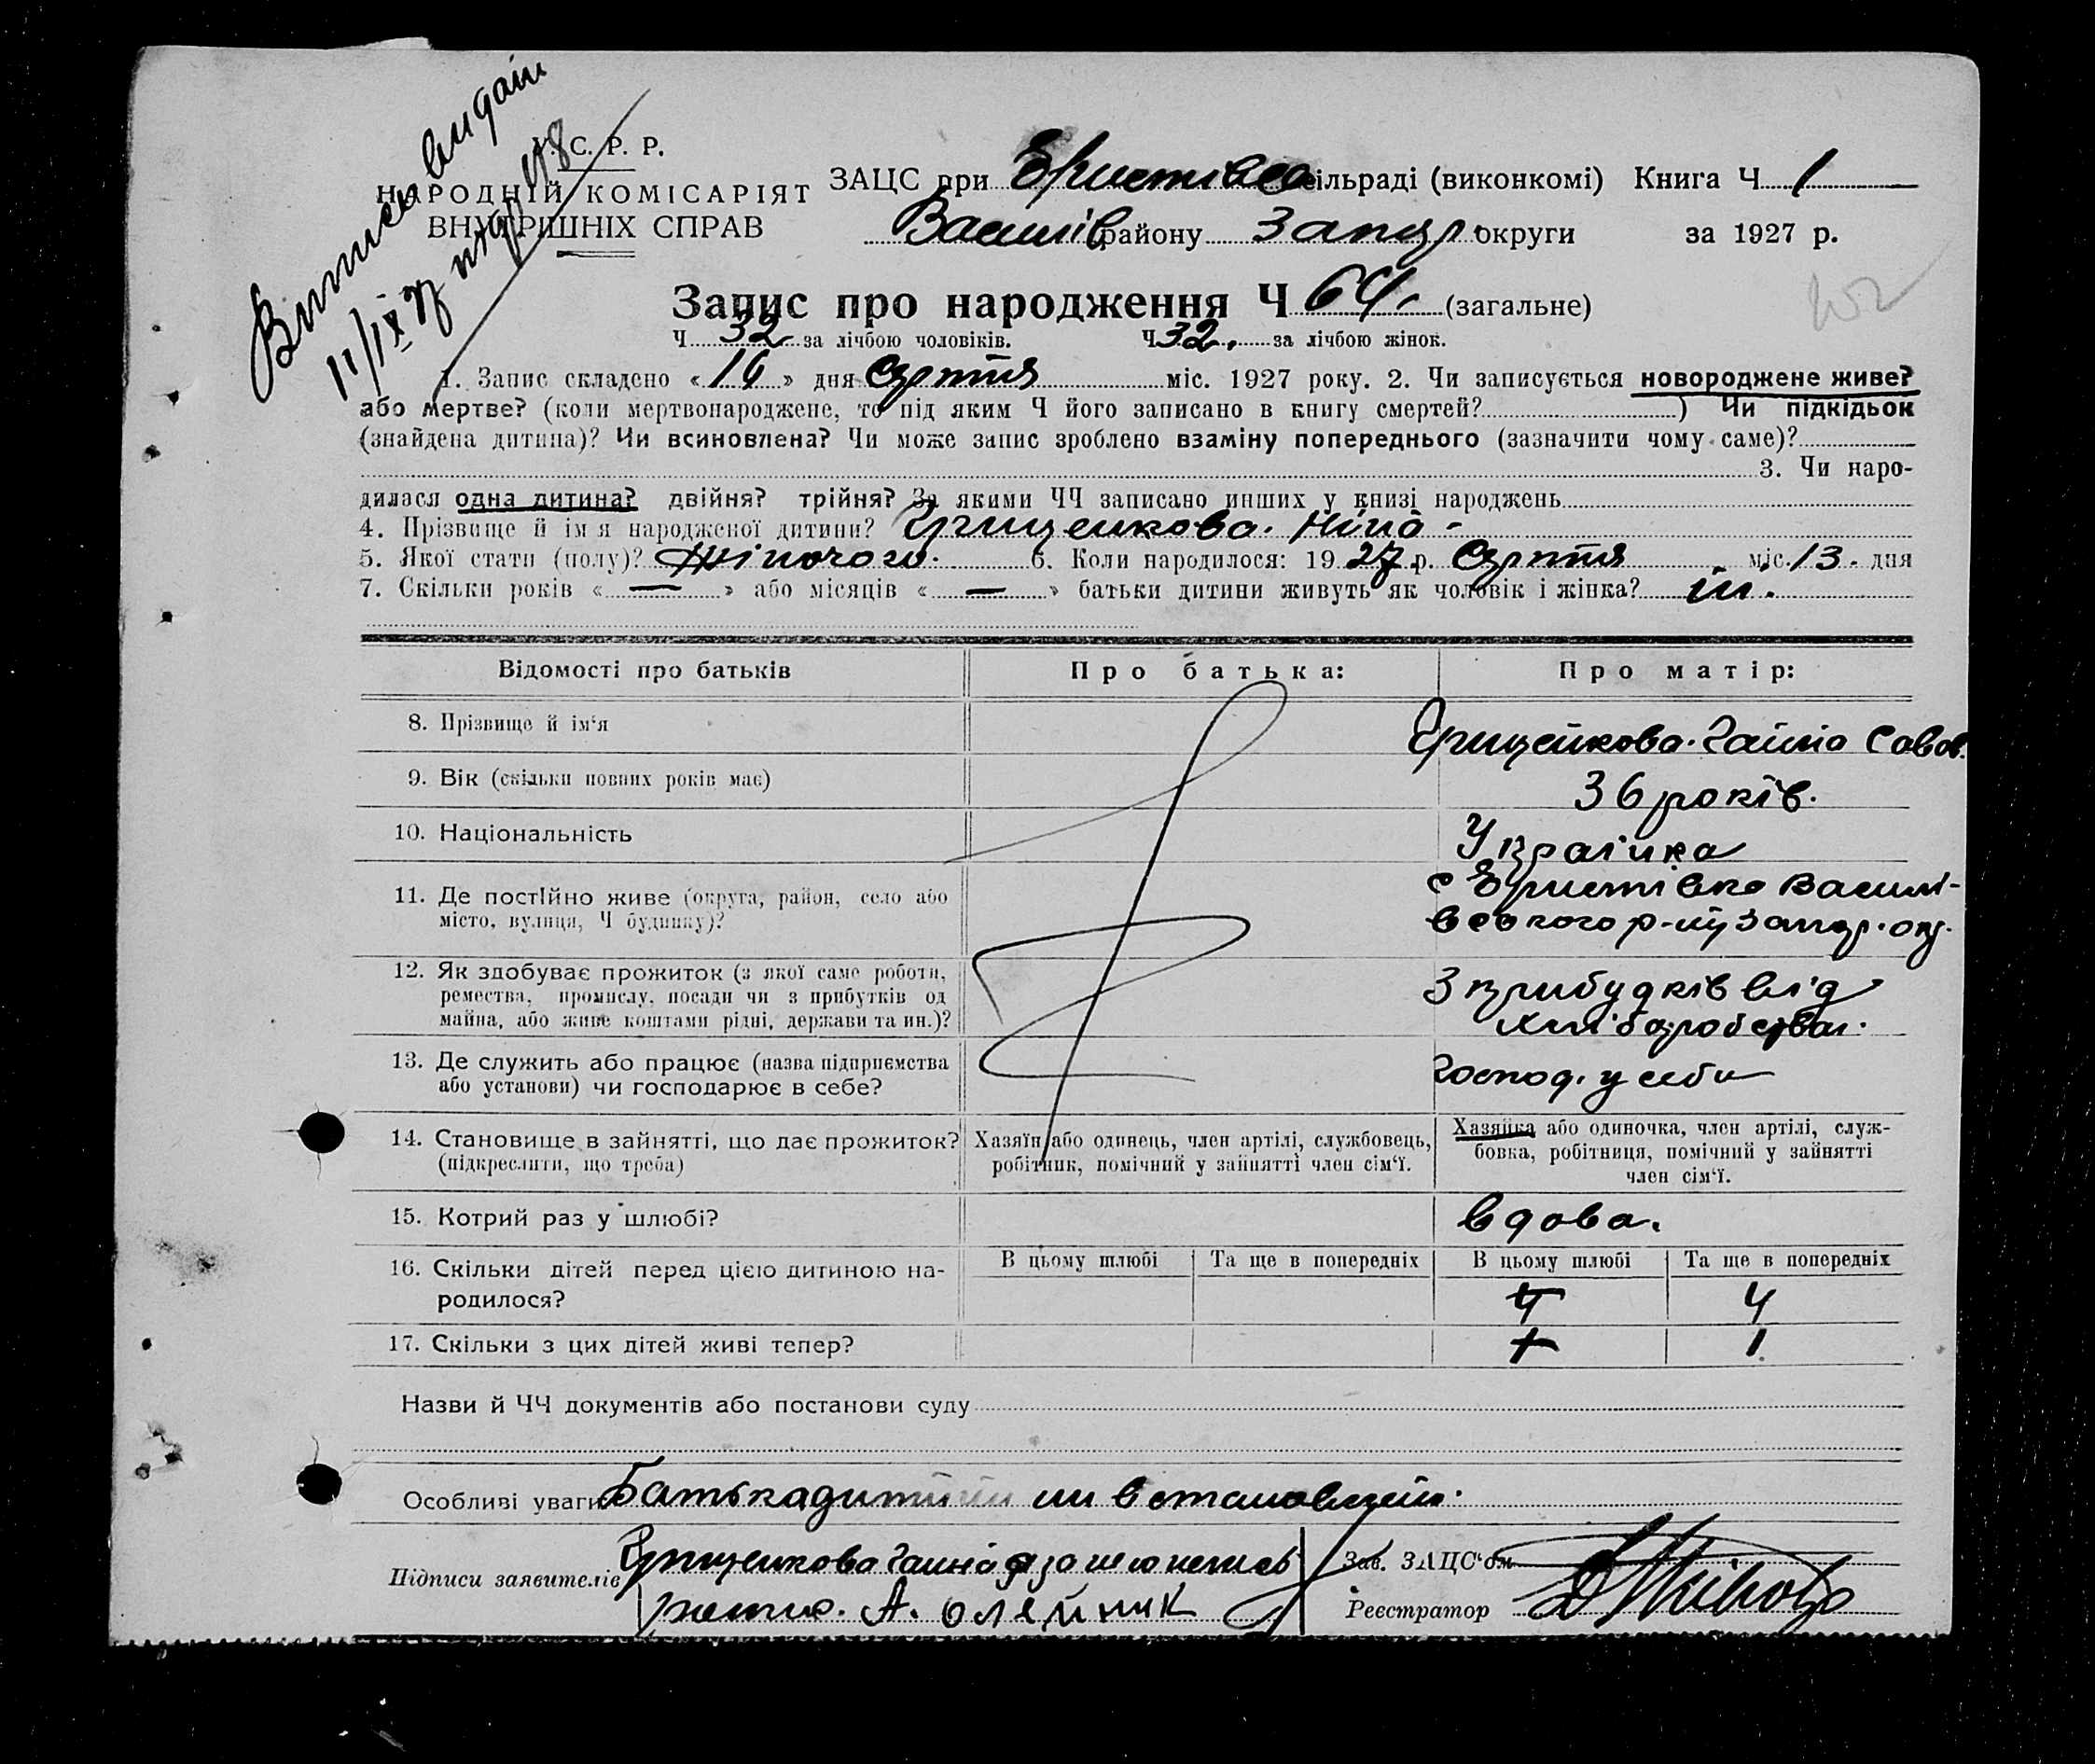 Виписъ видан
11/IX 27
С. Р. Р.
НАРОДНІЙ КОМІСАРІЯТ
ВНУТРІШНІХ СПРАВ
ЗАЦС при Єристівс сільраді (виконкомі) Книга Ч 1
Василів району Запор округи за 1927 р.
Запис про народження Ч 64. (загальне)
Ч 32 за лічбою чоловіків. Ч 32. за лічбою жінок.
1. Запис складено «16» дня Серпня міс. 1927 року. 2. Чи записується новороджене живе?
або мертве? (коли мертвонароджене, то під яким Ч його записано в книгу смертей? ) Чи підкідьок
(знайдена дитина)? Чи всиновлена? Чи може запис зроблено взаміну попереднього (зазначити чому саме)?
3. Чи наро-
дилася одна дитина? двійня? трійня? За якими ЧЧ записано инших у книзі народжень
4. Прізвище й ім я народженої дитини? Грищенкова. Ніна -
5. Якої стати (полу)? Жіночого. 6. Коли народилося: 1927 р. Серпня міс. 13. дня
7. Скільки років « — » або місяців « — » батьки дитини живуть як чоловік і жінка? ні.
Відомості про батьків Про батька: Про матір:
8. Прізвище й ім‘я Грищенкова. Ганна Савов.
9. Вік (скільки повних років має) 36 років.
10. Національність Українка
11. Де постійно живе (округа, район, село або с Єристівка Василі-
місто, вулиця, Ч будинку)? вського р-ну Запор. окр.
12. Як здобуває прожиток (з якої саме роботи, З прибудків від
ремества, промислу, посади чи з прибутків од
майна, або живе коштами рідні, держави та ин.)? хліборобства.
13. Де служить або працює (назва підприємства Господ. у себи
або установи) чи господарює в себе?
14. Становище в зайнятті, що дає прожиток? Хазяїн або одинець, член артілі, службовець, Хазяйка або одиночка, член артілі, служ-
(підкреслити, що треба) робітник, помічний у зайнятті член сім‘ї. бовка, робітниця, помічний у зайнятті
член сім‘ї.
15. Котрий раз у шлюбі? Вдова.
16. Скільки дітей перед цією дитиною на- В цьому шлюбі Та ще в попередніх В цьому шлюбі Та ще в попередніх
родилося? 4 4
17. Скільки з цих дітей живі тепер? 1
Назви й ЧЧ документів або постанови суду
Особливі уваги Батька дитини ни встановлено.
Підписи заявителів Грищенкова Ганна а за нею непись Зав. ЗАЦС‘ом
А. Олейник Реєстратор